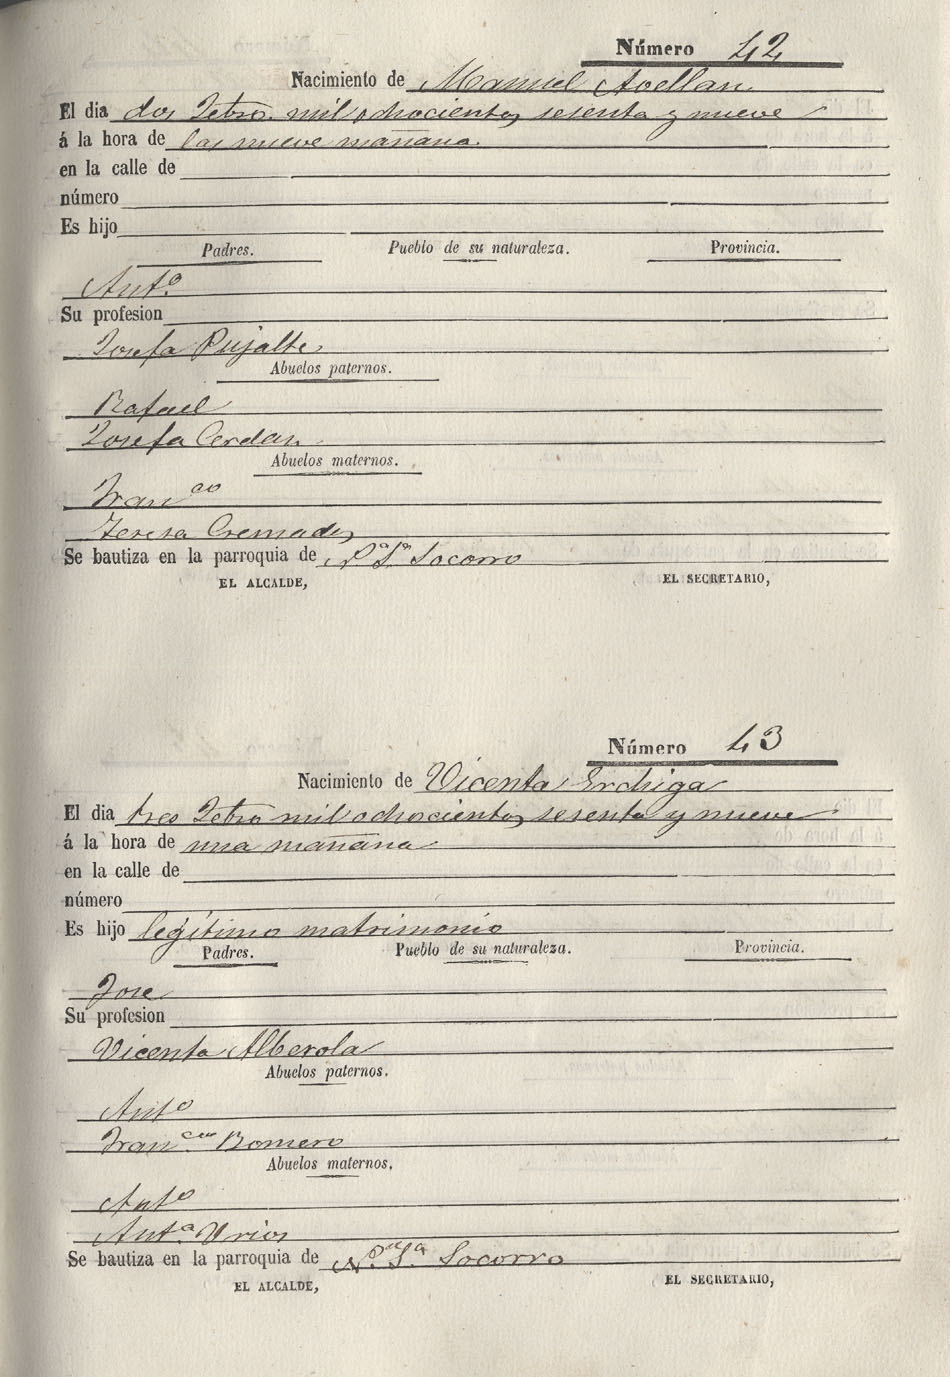 Número 42
Nacimiento de Manuel Avellan
El dia dos Febro. mil ochocientos sesenta y nueve
á la hora de las nueve mañana
en la calle de
número
Es hijo
Padres. Pueblo de su naturaleza. Provincia.
Anto.
Su profesion
Josefa Pujalte
Abuelos paternos.
Rafael
Josefa Cerdan
Abuelos maternos.
Franco
Teresa Cremades
Se bautiza en la parroquia de Na. Sa. Socorro
EL ALCALDE, EL SECRETARIO,
Número 43
Nacimiento de Vicenta
El dia tres Febro mil ochocientos sesenta y nueve
á la hora de una mañana
en la calle de
número
Es hijo legítimo matrimonio
Padres. Pueblo de su naturaleza. Provincia.
Jose
Su profesion
Vicenta Alberola
Abuelos paternos.
Anto
Franca. Romero
Abuelos maternos.
Anto
Anta Urios
Se bautiza en la parroquia de Na. Sa. Socorro
EL ALCALDE, EL SECRETARIO,